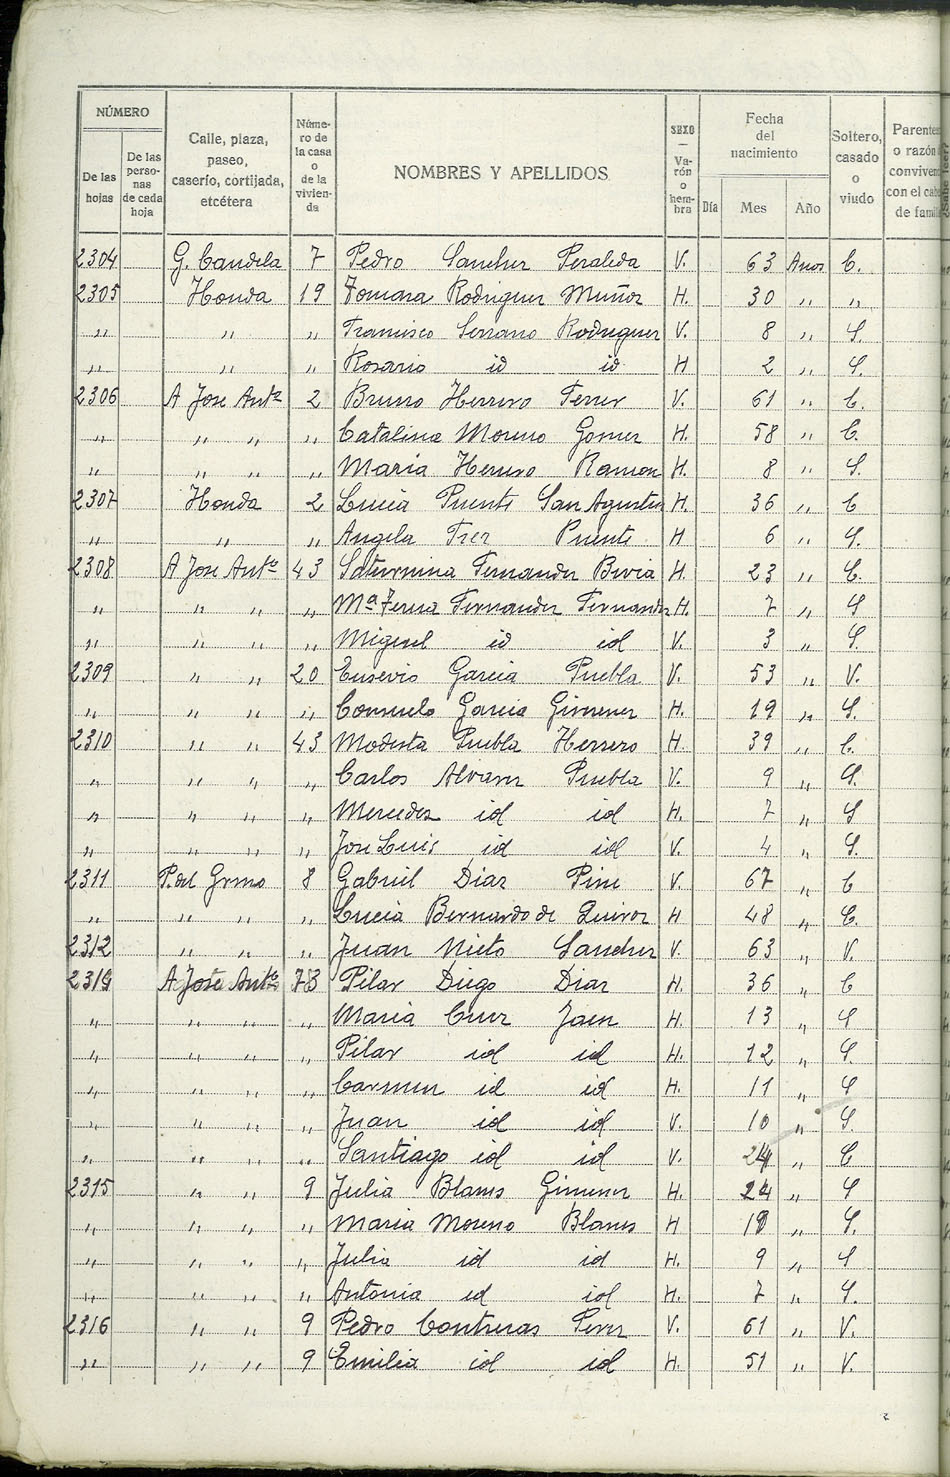 NÚMERO
De las hojas
De las perso- nas de cada hoja
Calle, plaza, paseo, caserío, cortijada, etcétera
Núme- ro de la casa o de la vivien- da
NOMBRES Y APELLIDOS
SEXO — Va- rón o hem- bra
Fecha del nacimiento
Día Mes Año
Soltero, casado o viudo
Parentes o razón convivenc con el cab de famil
2304 G. Candela 7 Pedro Sanchez Peraleda V. 63 Anos C.
2305 Honda 19 Tomasa Rodriguez Muñoz H. 30 " "
" " " Francisco Serrano Rodriguez V. 8 " S.
" " " Rosario id id H 2 " S.
2306 A Jose Antº 2 Bruno Herrero Ferrer V. 61 " C.
" " " " Catalina Moreno Gomez H. 58 " C.
" " " " Maria Herrero Ramon H. 8 " S.
2307 Honda 2 Lucia Puente San Agustin H. 36 " C
" " " Angela Puente H 6 " S.
2308 A Jose Antº 43 Saturnina Fernandez Bevia H. 23 " C.
" " " " Mª Teresa Fernandez Fernandez H. 7 " S
" " " " Miguel id id V. 3 " S.
2309 " " 20 Eusevio Garcia Puebla V. 53 " V.
" " " " Consuelo Garcia Gimenez H. 19 " S.
2310 " " 43 Modesta Puebla Herrero H. 39 " C.
" " " " Carlos Alvarez Puebla V. 9 " S.
" " " " Mercedes id id H. 7 " S
" " " " Jose Luis id id V. 4 " S.
2311 P. del Grmo 8 Gabriel Diaz Pine V. 67 " C
" " " " Lucia Bernardo de Quiroz H 48 " C.
2312 " " " Juan Nieto Sanchez V. 63 " V.
2314 A Jose Antº 73 Pilar Diego Diaz H. 36 " C
" " " " Maria Cruz Jaen H. 13 " S
" " " " Pilar id id H. 12 " S.
" " " " Carmen id id H. 11 " S
" " " " Juan id id V. 10 " S.
" " " " Santiago id id V. " C
2315 " " 9 Julia Blanes Gimenez H. 24 " S
" " " " Maria Moreno Blanes H " S.
" " " " Julia id id H. 9 " S
" " " " Antonia id id H. 7 " S.
2316 " " 9 Pedro Contreras Perez V. 61 " V.
" " " 9 Emilia id id H. 51 " V.